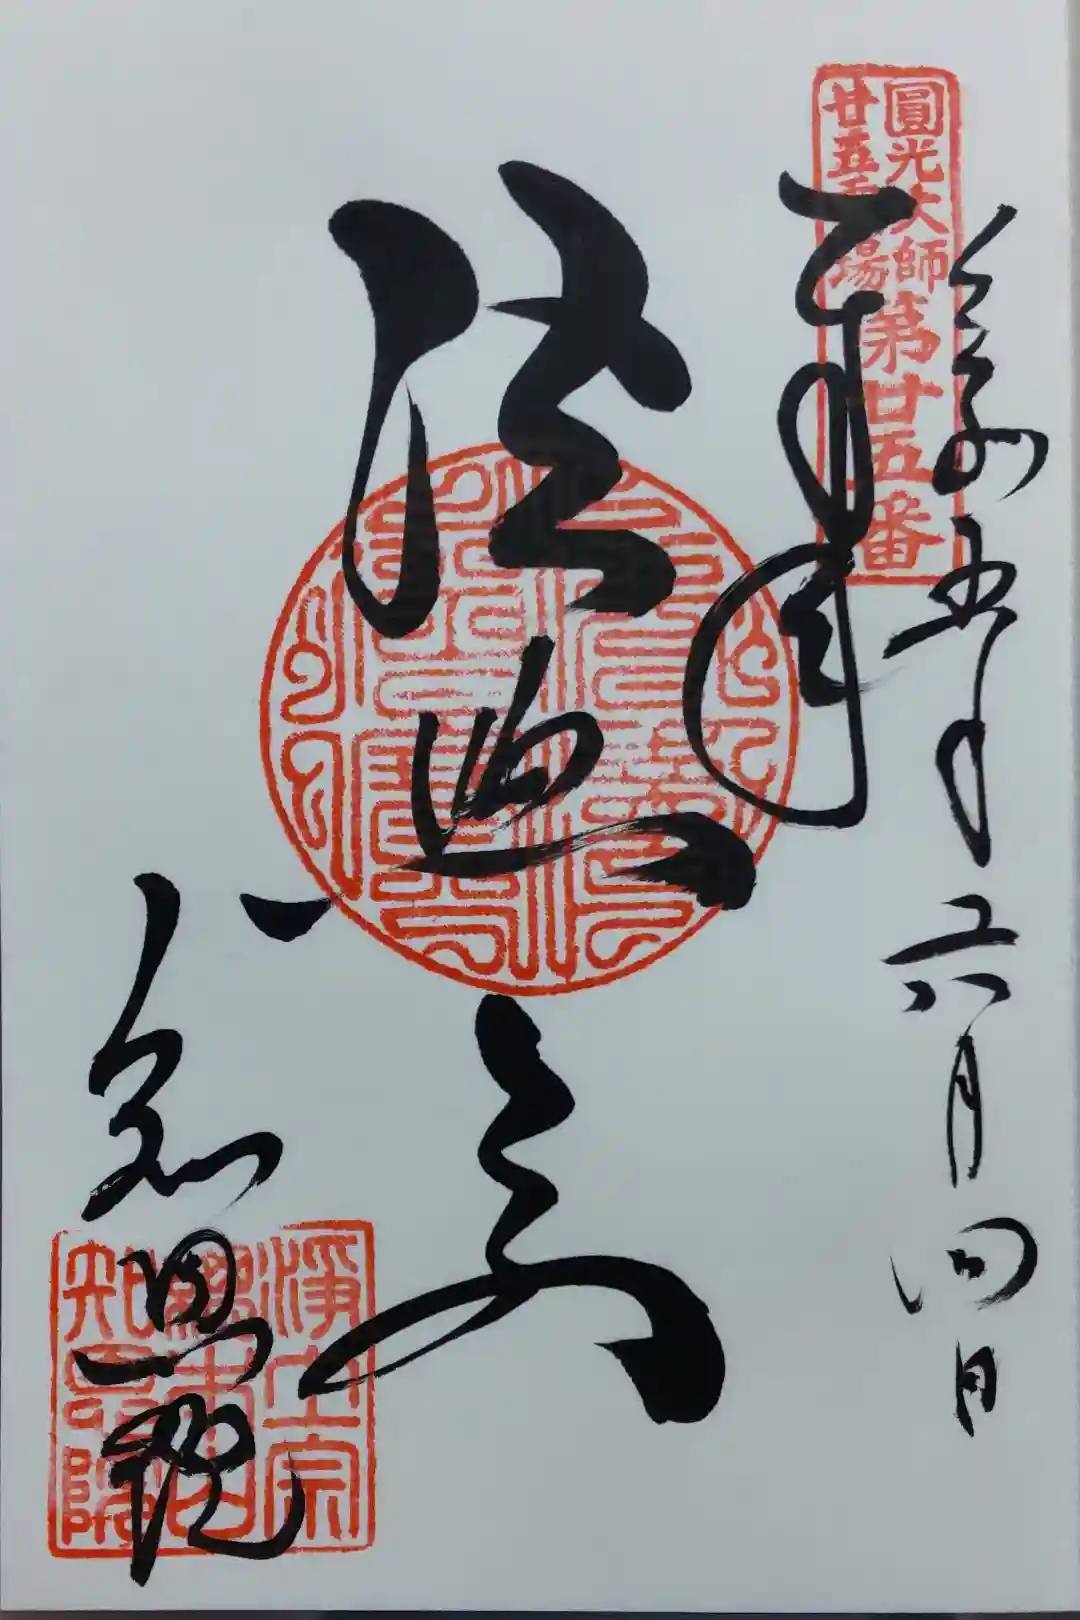 圓光大師
廿五霊場
第廿五番
奉拝
令和五年六月四日
法然
知恩院
淨土宗
總本山
知恩院